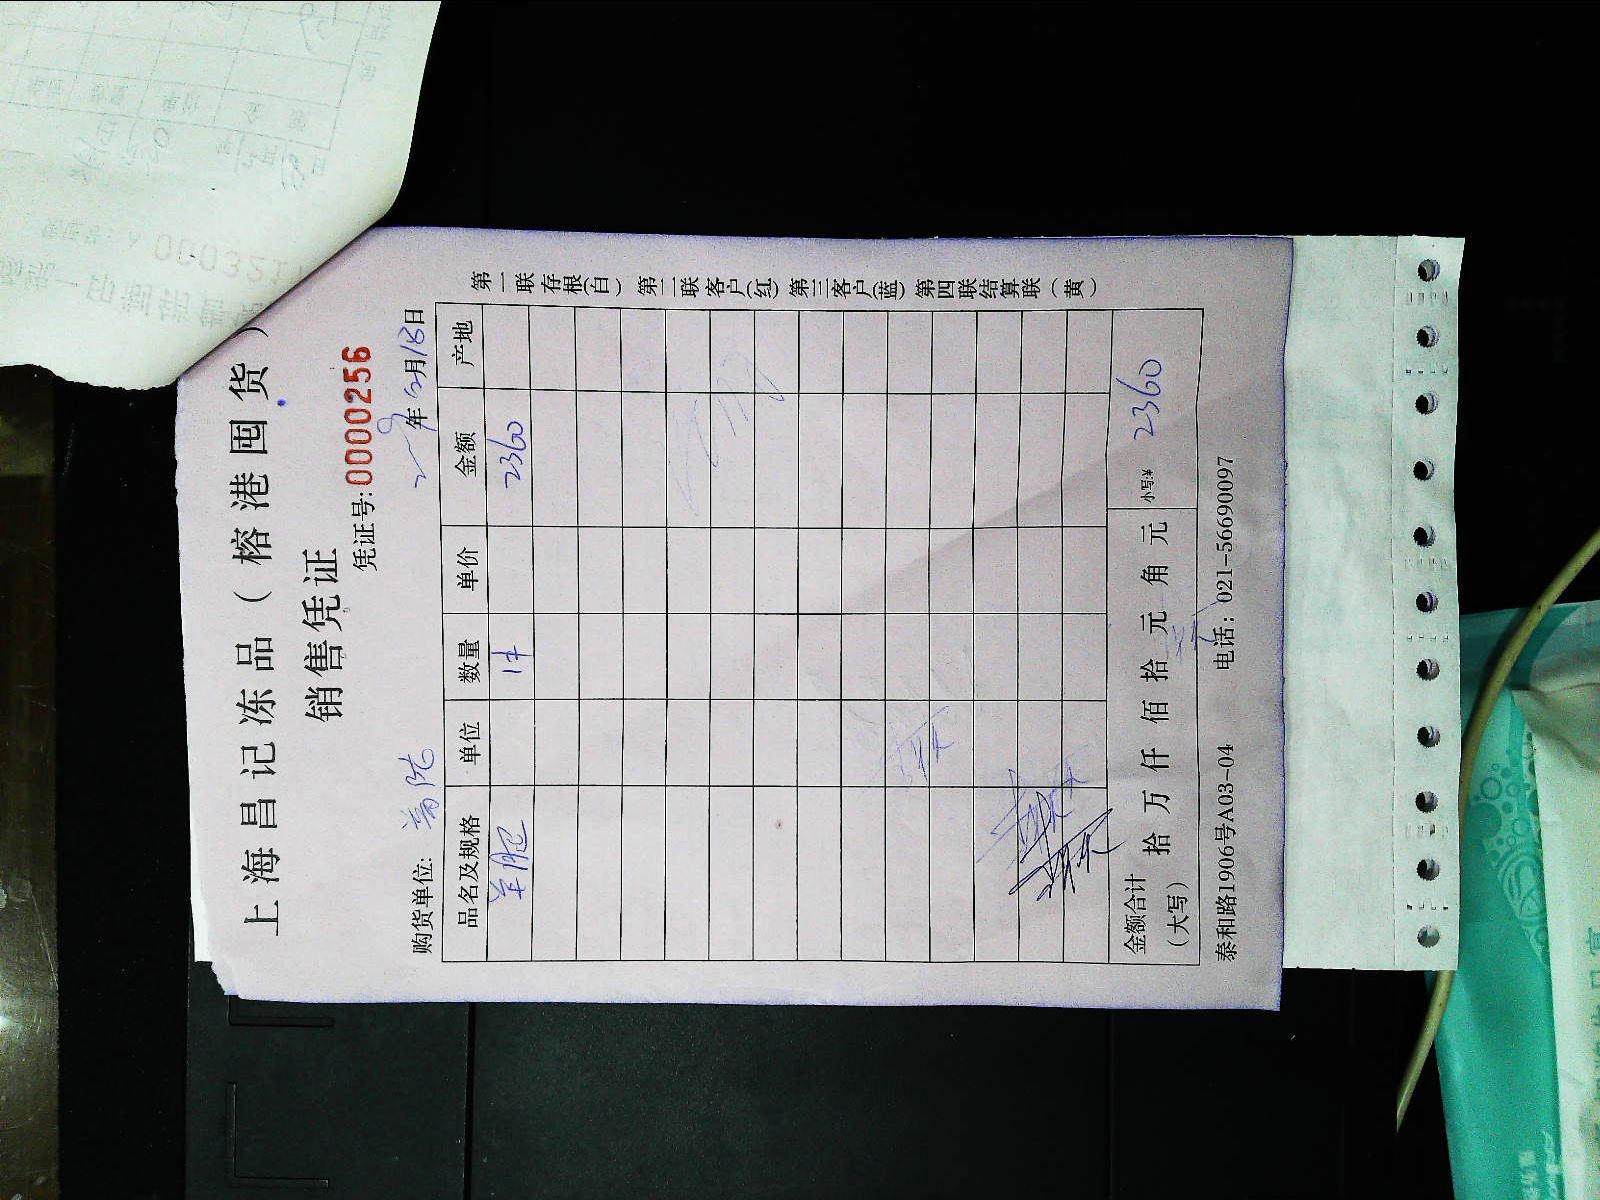 上海昌记冻品（榕港囤货）
销售凭证
凭证号:0000256
购货单位: 年 月18日
品名及规格 单位 数量 单价 金额 产地
羊肥 1件 2360
金额合计（大写） 拾 万 仟 佰 拾 元 角 元 小写:¥ 2360
泰和路1906号A03-04 电话：021-56690097
第一联存根(白) 第二联客户(红) 第三客户(蓝) 第四联结算联（黄）